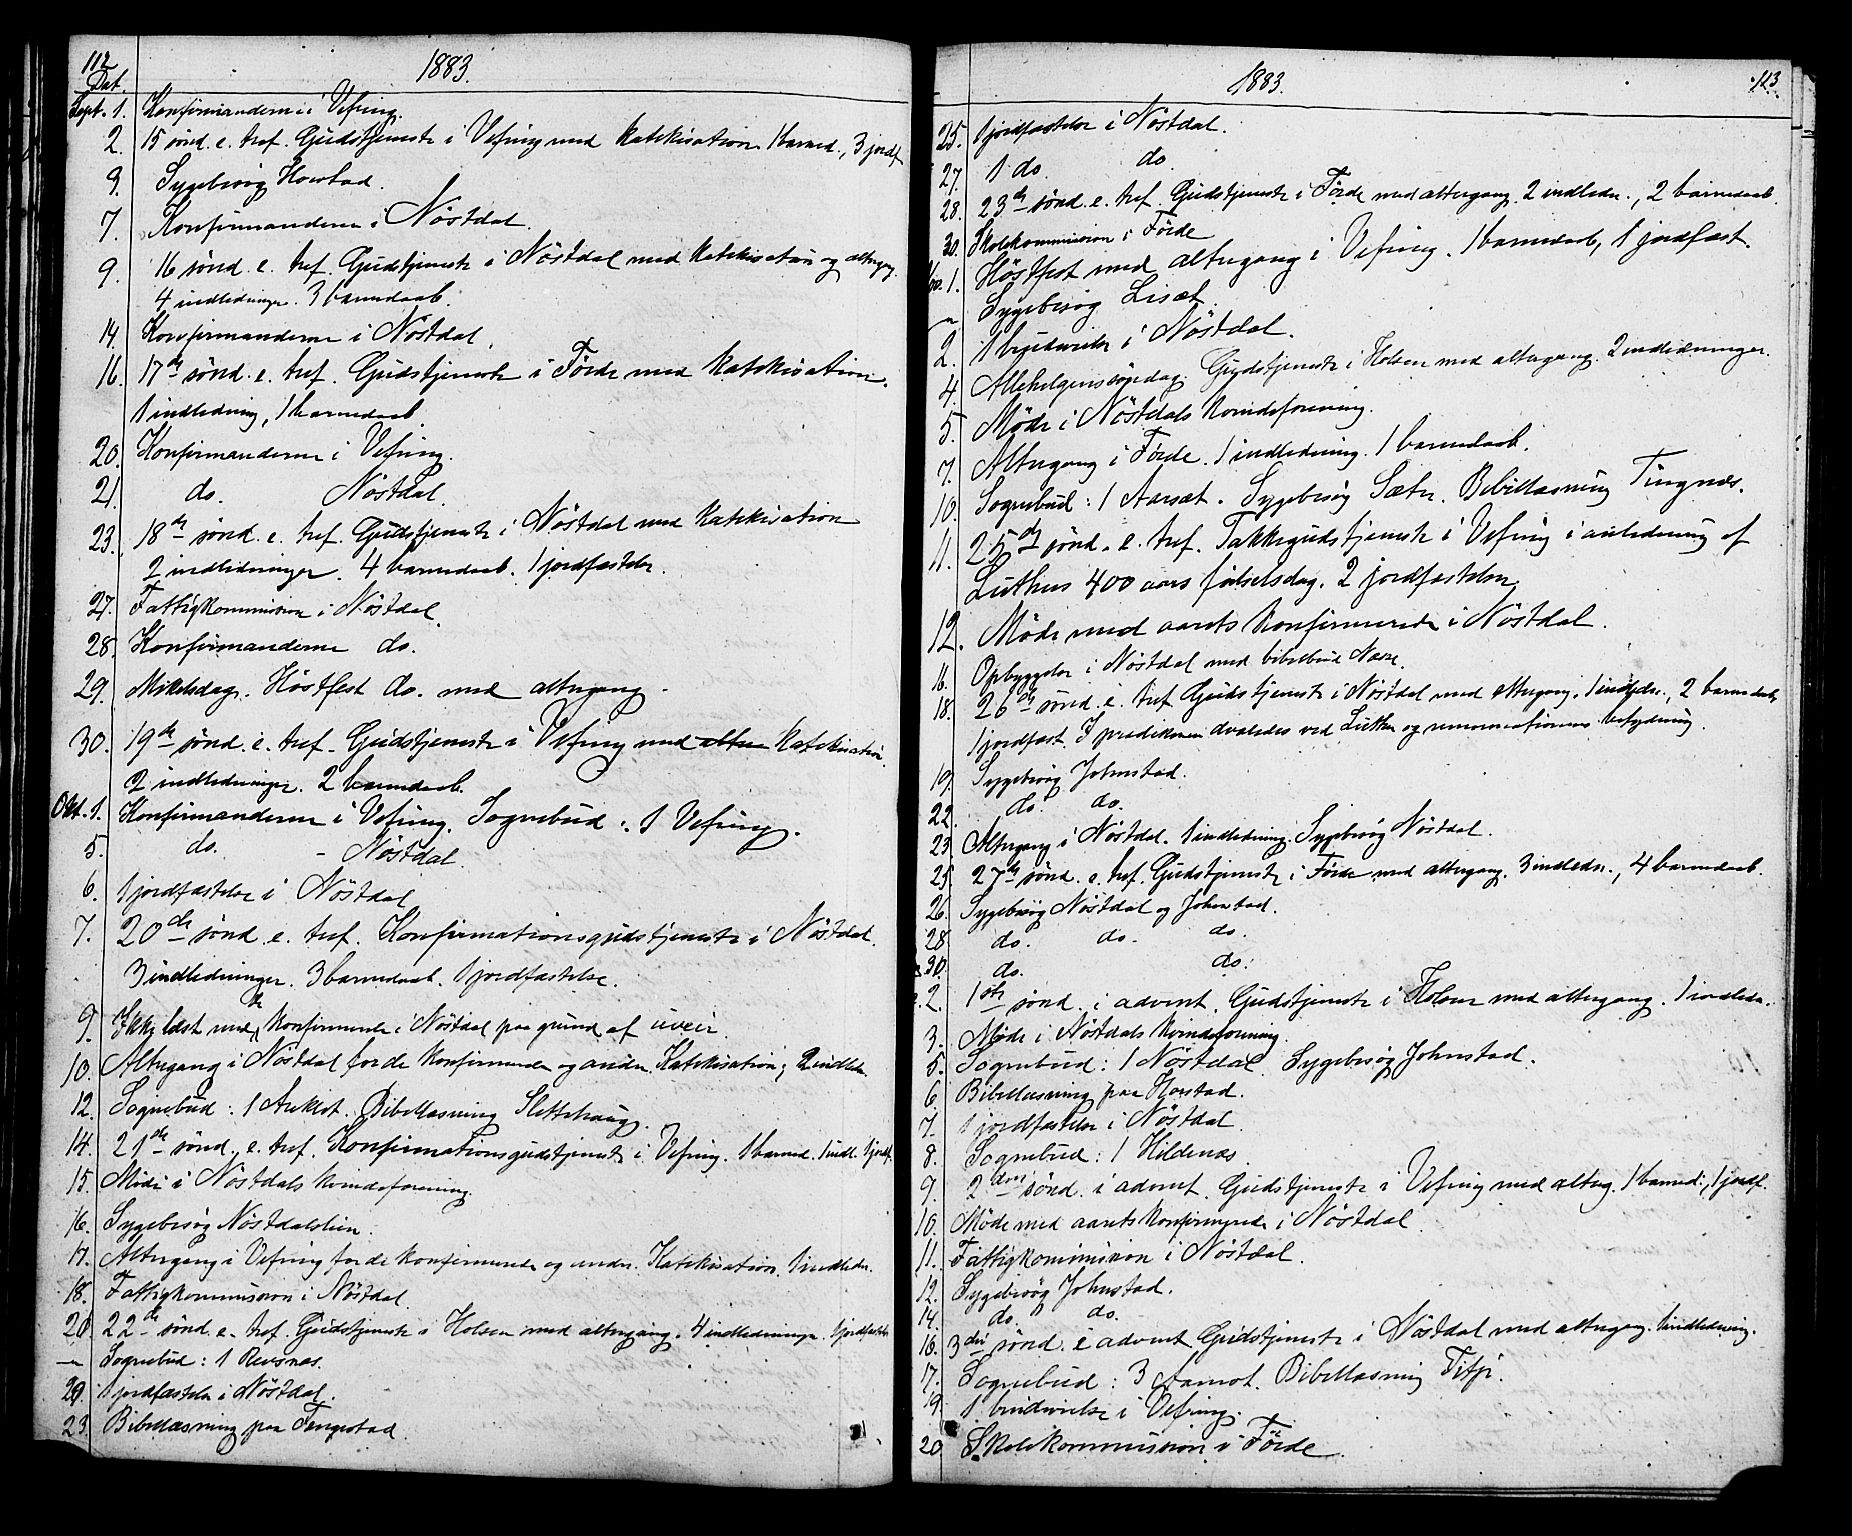 112
Dat.
1883.
Sept. 1. Konfirmanderne i Vefring.
2. 15 sönd. e. tref. Gudstjeneste i Vefring med katekisation. 1 barned., 3 jordf.
3. Sygebesög Horstad.
7. Konfirmanderne i Nöstdal.
9. 16 sönd. e. tref. Gudstjeneste i Nöstdal med katekisation og altergang.
4 indledninger. 3 barnedaab.
14. Konfirmanderne i Nöstdal.
16. 17de sönd. e. tref. Gudstjeneste i Förde med katekisation.
1 indledning, 1 barnedaab.
20. Konfirmanderne i Vefring.
21. do. Nöstdal.
23. 18de sönd. e. tref. Gudstjeneste i Nöstdal med katekisation
2 indledninger. 4 barnedaab. 1 jordfæstelse.
27. Fattigkommission i Nöstdal.
28. Konfirmanderne do.
29. Mikelsdag. Höstfest do. med altergang.
30. 19de sönd. e. tref. Gudstjeneste i Vefring med alter katekisation.
2 indledninger. 2 barnedaab.
Okt. 1. Konfirmanderne i Vefring. Sognebud: 1 Vefring.
5. do. - Nöstdal.
6. 1 jordfæstelse i Nöstdal
7. 20de sönd. e. tref. Konfirmationsgudstjeneste i Nöstdal.
3 indledninger. 3 barnedaab. 1 jordfæstelse.
9. Ikke læst med de konfirmerede i Nöstdal paa grund af uveir.
10. Altergang i Nöstdal for de konfirmerede og andre. Katekisation; 2 indledn.
12. Sognebud: 1 Bibellæsning Slettehaug.
14. 21de sönd. e. tref. Konfirmationsgudstjeneste i Vefring. 1 barned. 1 indl. 1 jordf.
15. Möde i Nöstdals kvindeforening.
16. Sygebesög Nöstdalslien.
17. Altergang i Vefring for de konfirmerede og andre. Katekisation. 1 indledn.
18. Fattigkommission i Nöstdal
20 22de sönd. e. tref. Gudstjeneste i Holsen med altergang. 4 indledninger. 1 jordfæstelse
" Sognebud: 1 Revsnæs.
20. 1 jordfæstelse i Nöstdal.
23. Bibellæsning paa
1883.
113
25. 1 jordfæstelse i Nöstdal.
27. 1 do. do
28. 23de sönd. e. tref. Gudstjeneste i Förde med altergang. 2 indledn., 2 barnedaab.
30. Skolekommission i Förde
Nov. 1. Höstfest med altergang i Vefring. 1 barnedaab, 1 jordfæst.
" Sygebesög Liset.
2. 1 i Nöstdal.
4. Allehelgenssöndag. Gudstjeneste i Holsen med altergang. 2 indledninger.
5. Möde i Nöstdals kvindeforening.
7. Altergang i Förde. 1 indledning. 1 barnedaab.
10. Sognebud: 1 Aarsæt. Sygebesög Sæter. Bibellæsning Tingnæs.
11. 25de sönd. e. tref. Takkegudstjeneste i Vefring i anledning af
Luthers 400 aars födselsdag. 2 jordfæstelser.
12. Möde med aarets konfirmerede i Nöstdal.
16. Opbyggelse i Nöstdal med bibelbud
18. 26de sönd. e. tref. Gudstjeneste i Nöstdal med altergang. 1 indledn., 2 barnedaab
1 jordfæst. I prædikenen dvæledes ved Luther og reformationens betydning.
19. Sygebesög Johnstad.
22. do. do.
23 Altergang i Nöstdal. 1 indledning. Sygebesög Nöstdal.
25. 27de sönd. e. tref. Gudstjeneste i Förde med altergang. 3 indledn., 4 barnedaab.
26. Sygebesög Nöstdal og Johnstad.
28 do. do. do.
30. do. do.
2. 1ste sönd. i advent. Gudstjeneste i Holsen med altergang. 1 indledn.
3. Möde i Nöstdals kvindeforening.
5. Sognebud: 1 Nöstdal. Sygebesög Johnstad.
6 Bibellæsning paa Horstad.
7. 1 jordfæstelse i Nöstdal.
8. Sognebud: 1 Hildenæs.
9. 2den sönd. i advent. Gudstjeneste i Vefring med alterg. 1 barned., 1 jordf.
10. Möde med aarets konfirmerede i Nöstdal.
11. Fattigkommission i Nöstdal.
12. Sygebesög Johnstad.
14. do. do.
16. 3die sönd. e advent Gudstjeneste i Nöstdal med altergang. 1 indledning.
17. Sognebud: 3 Aamot. Bibellæsning
19 1 i Vefring.
20 Skolekommission i Förde.